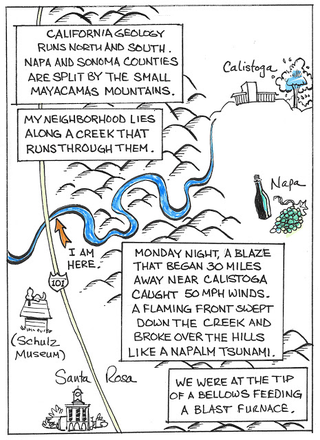 CALIFORNIA GEOLOGY
RUNS NORTH AND SOUTH.
NAPA AND SONOMA COUNTIES
ARE SPLIT BY THE SMALL
MAYACAMAS MOUNTAINS.
Calistoga
MY NEIGHBORHOOD LIES
ALONG A CREEK THAT
RUNS THROUGH THEM.
Napa
I AM
HERE.
101
MONDAY NIGHT, A BLAZE
THAT BEGAN 30 MILES
AWAY NEAR CALISTOGA
CAUGHT 50 MPH WINDS.
A FLAMING FRONT SWEPT
DOWN THE CREEK AND
BROKE OVER THE HILLS
LIKE A NAPALM TSUNAMI.
(Schulz
Museum)
Santa Rosa
WE WERE AT THE TIP
OF A BELLOWS FEEDING
A BLAST FURNACE.